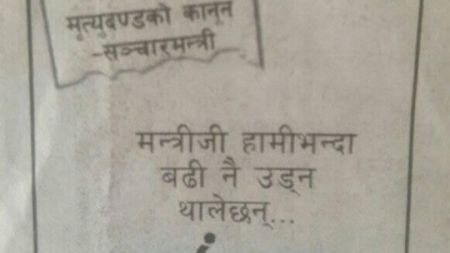 मृत्युदण्डको कानून
-सञ्चारमन्त्री
मन्त्रीजी हामीभन्दा
बढी नै उड्न
थालेछन्...